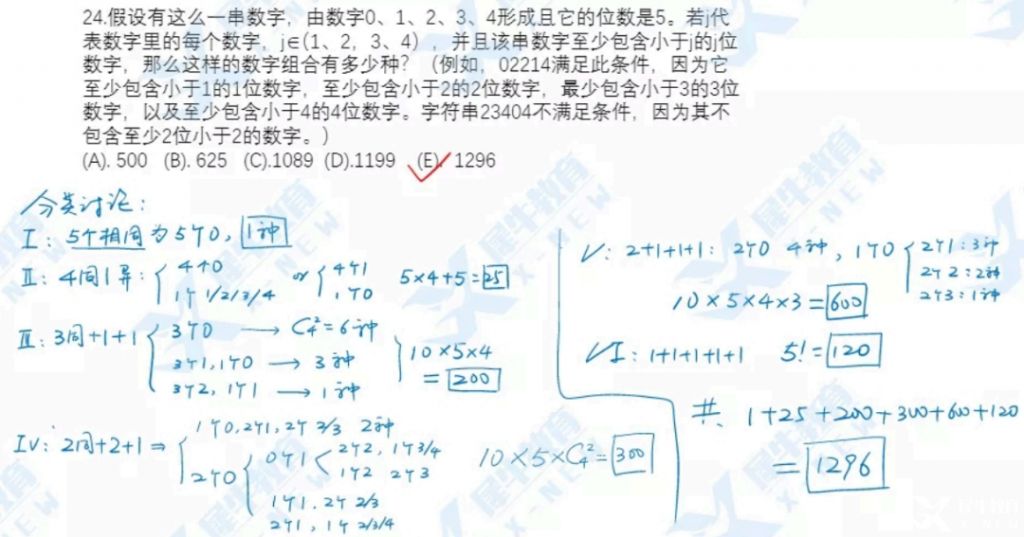 24.假设有这么一串数字，由数字0、1、2、3、4形成且它的位数是5。若j代
表数字里的每个数字，j∈(1、2，3、4），并且该串数字至少包含小于j的j位
数字，那么这样的数字组合有多少种？（例如，02214满足此条件，因为它
至少包含小于1的1位数字，至少包含小于2的2位数字，最少包含小于3的3位
数字，以及至少包含小于4的4位数字。字符串23404不满足条件，因为其不
包含至少2位小于2的数字。）
(A). 500 (B). 625 (C).1089 (D).1199 (E). 1296
分类讨论：
I：5个相同为5个0，1种
II：4同1异：4个0 or 4个1 5×4+5=25
1个1/2/3/4 1个0
III：3同+1+1 3个0 → C₄²=6种
3个1,1个0 → 3种 10×5×4
3个2，1个1 → 1种 =200
IV：2同+2+1⇒ 1个0,2个1,2个2/3 2种
2个0 0个1 2个2，1个3/4
1个2 2个3
1个1．2个2/3
2个1，1个2/3/4
10×5×C₄²=300
V：2+1+1+1：2个0 4种，1个0 2个1：3种
2个2：2种
2个3：1种
10×5×4×3=600
VI：1+1+1+1+1 5!=120
共 1+25+200+300+600+120
=1296
犀牛教育
X-NEW